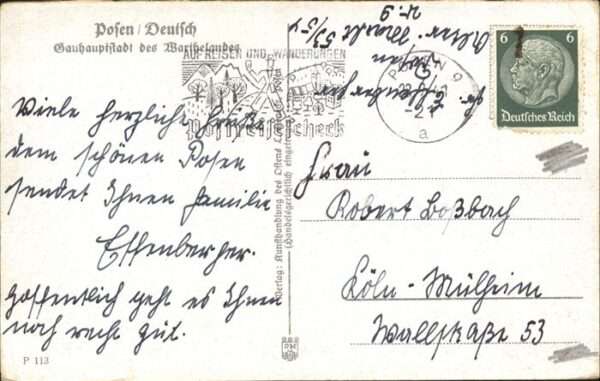 Posen / Deutsch
Gauhauptstadt des Warthelandes
AUF REISEN UND WANDERUNGEN
Postreisescheck
POSEN 9
a
6 6
Deutsches Reich
Posen
Viele herzliche Grüße
dem schönen Posen
sendet Ihnen Familie
Effenberger.
Hoffentlich geht es Ihnen
noch recht gut.
P 113
Verlag: Kunsthandlung des Ostens
(Handelsgerichtlich eingetragen)
Frau
Robert Boßbach
Köln-Mülheim
Wallstraße 53